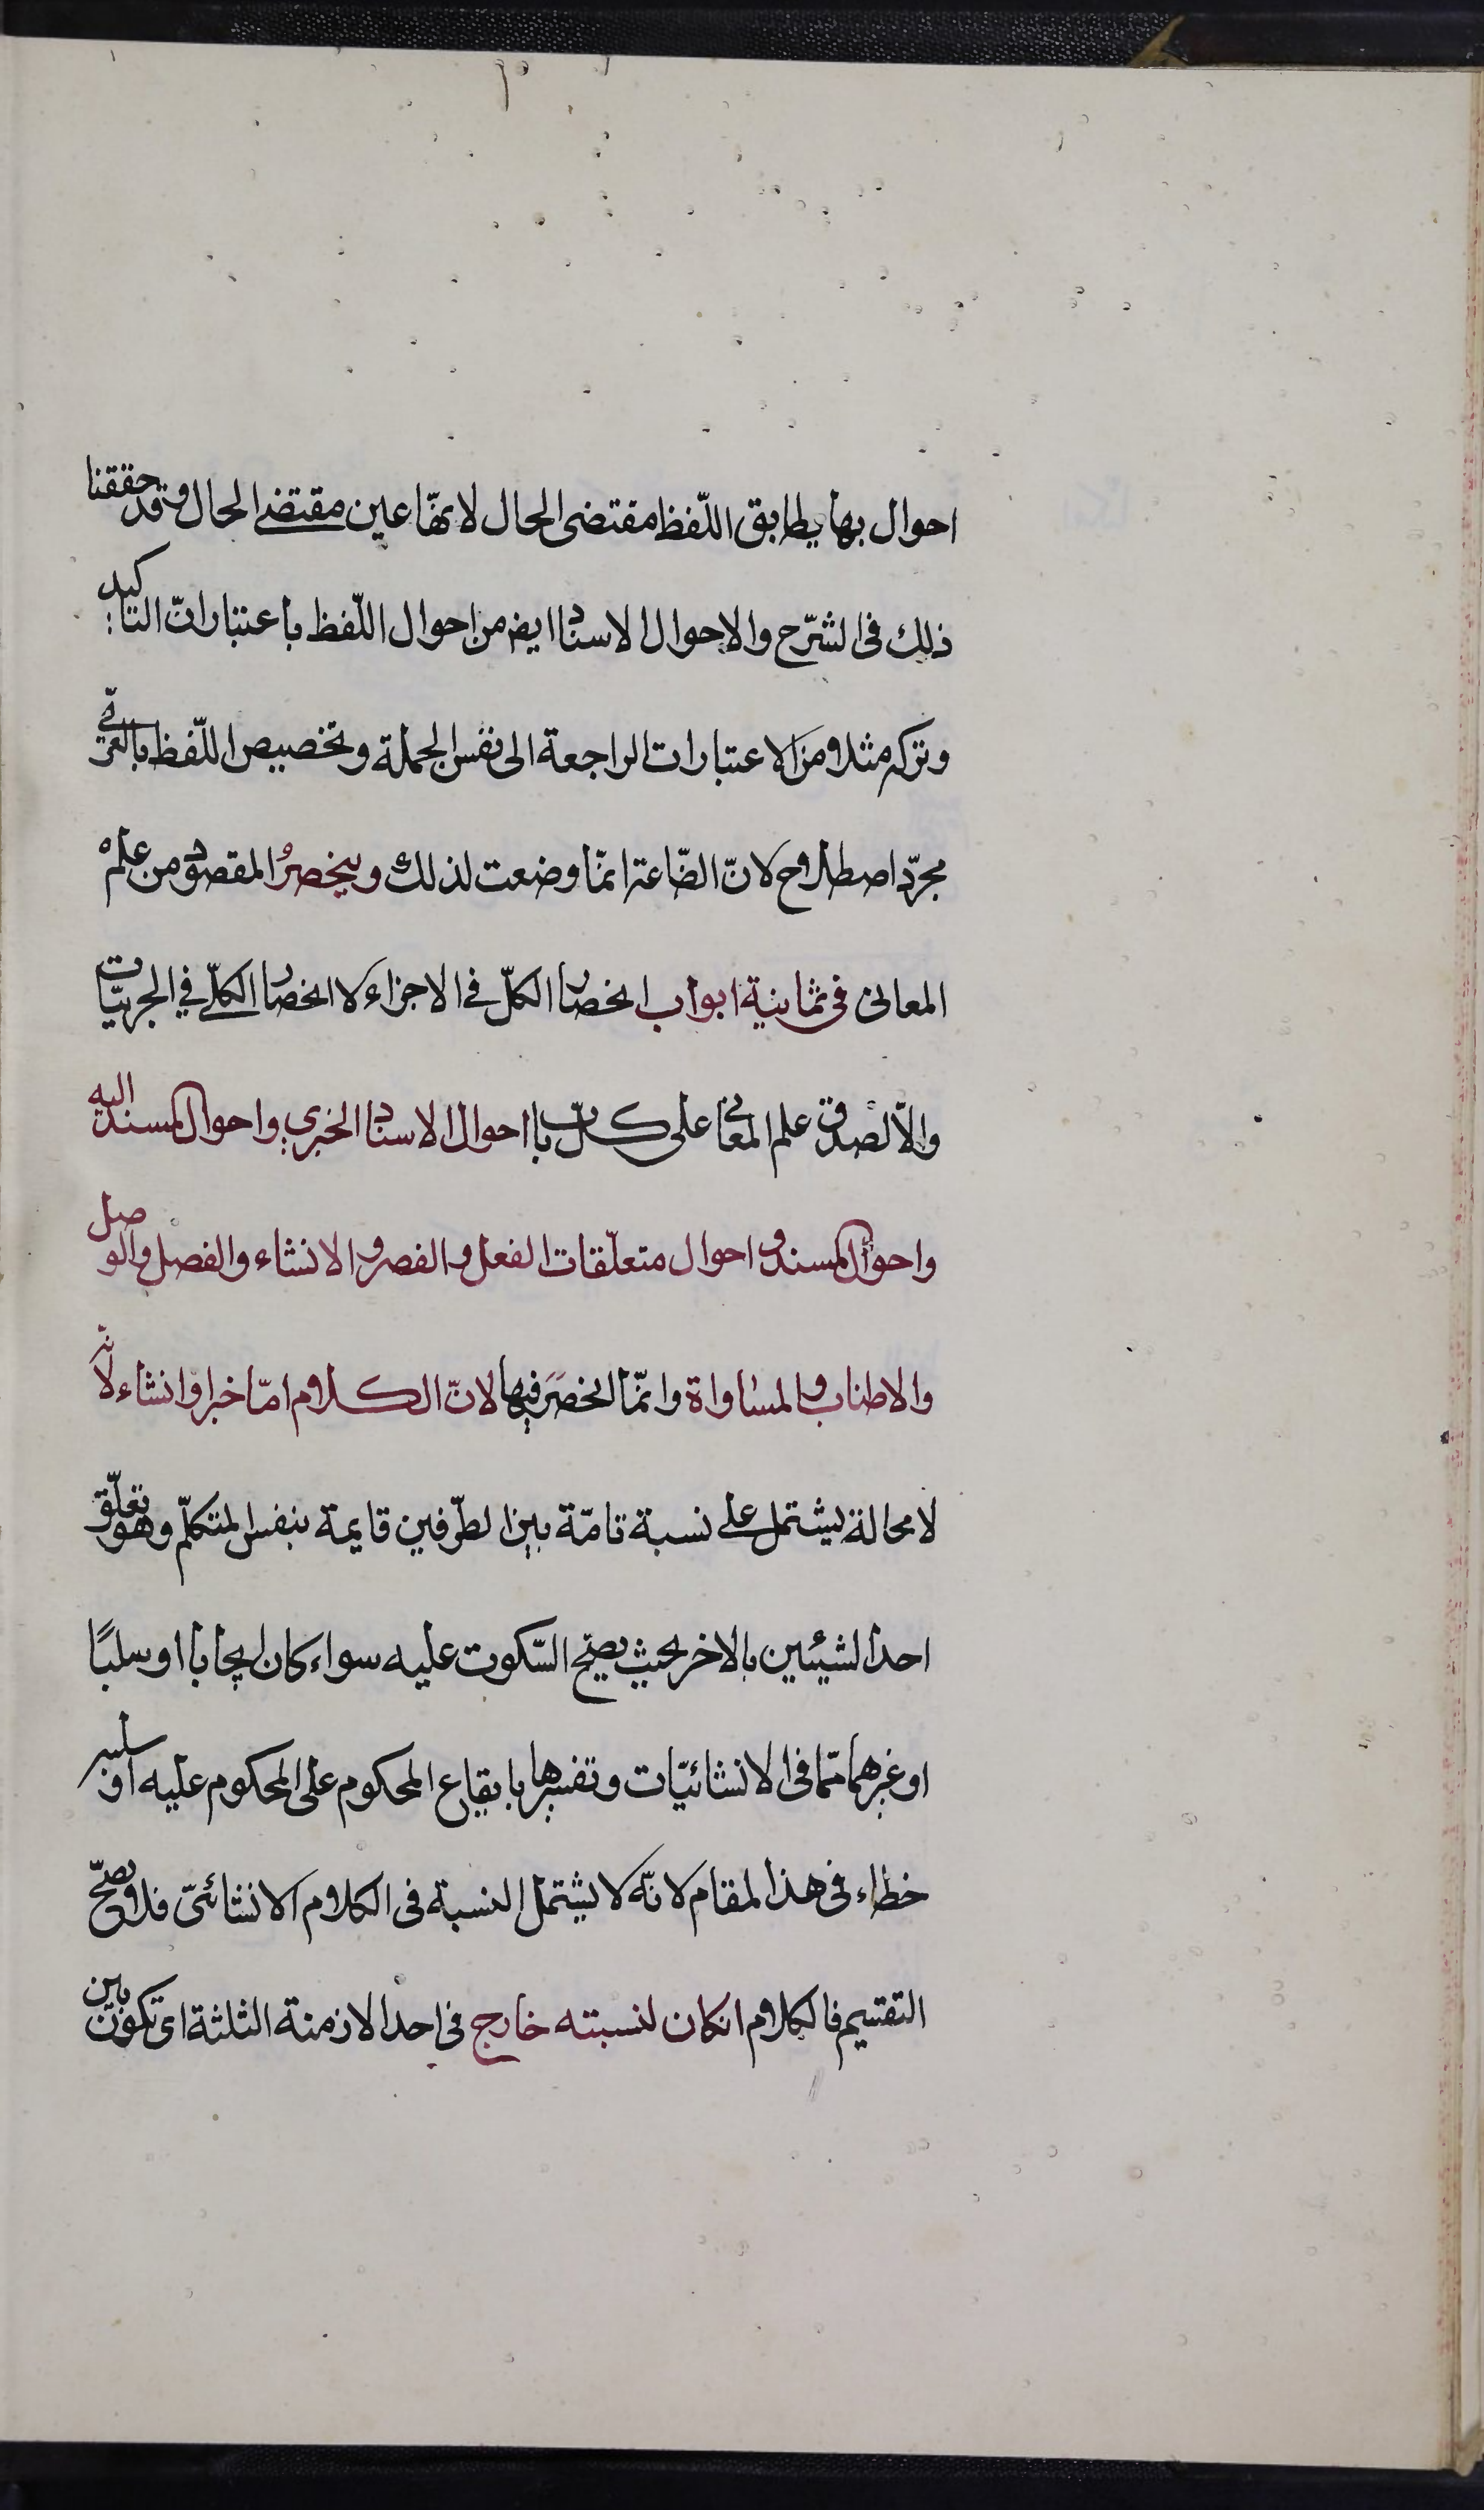 احوال بها يطابق اللّفظ مقتضى الحال لا نهّا عين مقتضى الحال وقد حققنا
ذلك فى الشرّح والاحوال الاسناد ايض من احوال اللّفظ باعتبار انّ التاكيد
وتركه مثلا من الاعتبارات الراجعة الى نفس الجملة وتخصيص اللّفظ بالعربّى
مجرّد اصطلاح لانّ الصّناعة انمّا وضعت لذلك وينحصرُ المقصود من علم
المعانى فى ثمانية ابواب انحصار الكلّ فى الاجزاء لا انحصار الكلّى فى الجزئيّات
والّا لصدق علم المعانى على كلّ باب احوال الاسناد الخبرى واحوال المسند اليه
واحوال المسند واحوال متعلّقات الفعل والقصر والانشاء والفصل والوصل
والاطناب والمساواة وانمّا انحصَر فيها لانّ الكلام امّا خبر او انشاء لانّه
لا محالة يشتمل على نسبة تامّة بين الطرّفين قايمة بنفس المتكلّم وهو تعلّق
احد الشيئين بالاخر بحيث يصحّ السّكوت عليه سواء كان ايجابا او سلبًا
او غيرهما ممّا فى الانشائيّات وتفسيرها بايقاع المحكوم على المحكوم عليه او سلبه
خطاء فى هذا المقام لانّه لا يشتمل النسبة فى الكلام الانشائىّ فلا يصحّ
التقسيم فالكلام انكان لنسبته خارج فى احد الازمنة الثلثة اى تكون بين